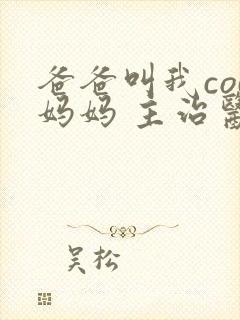 爸爸叫我co
妈妈 主治
吴松